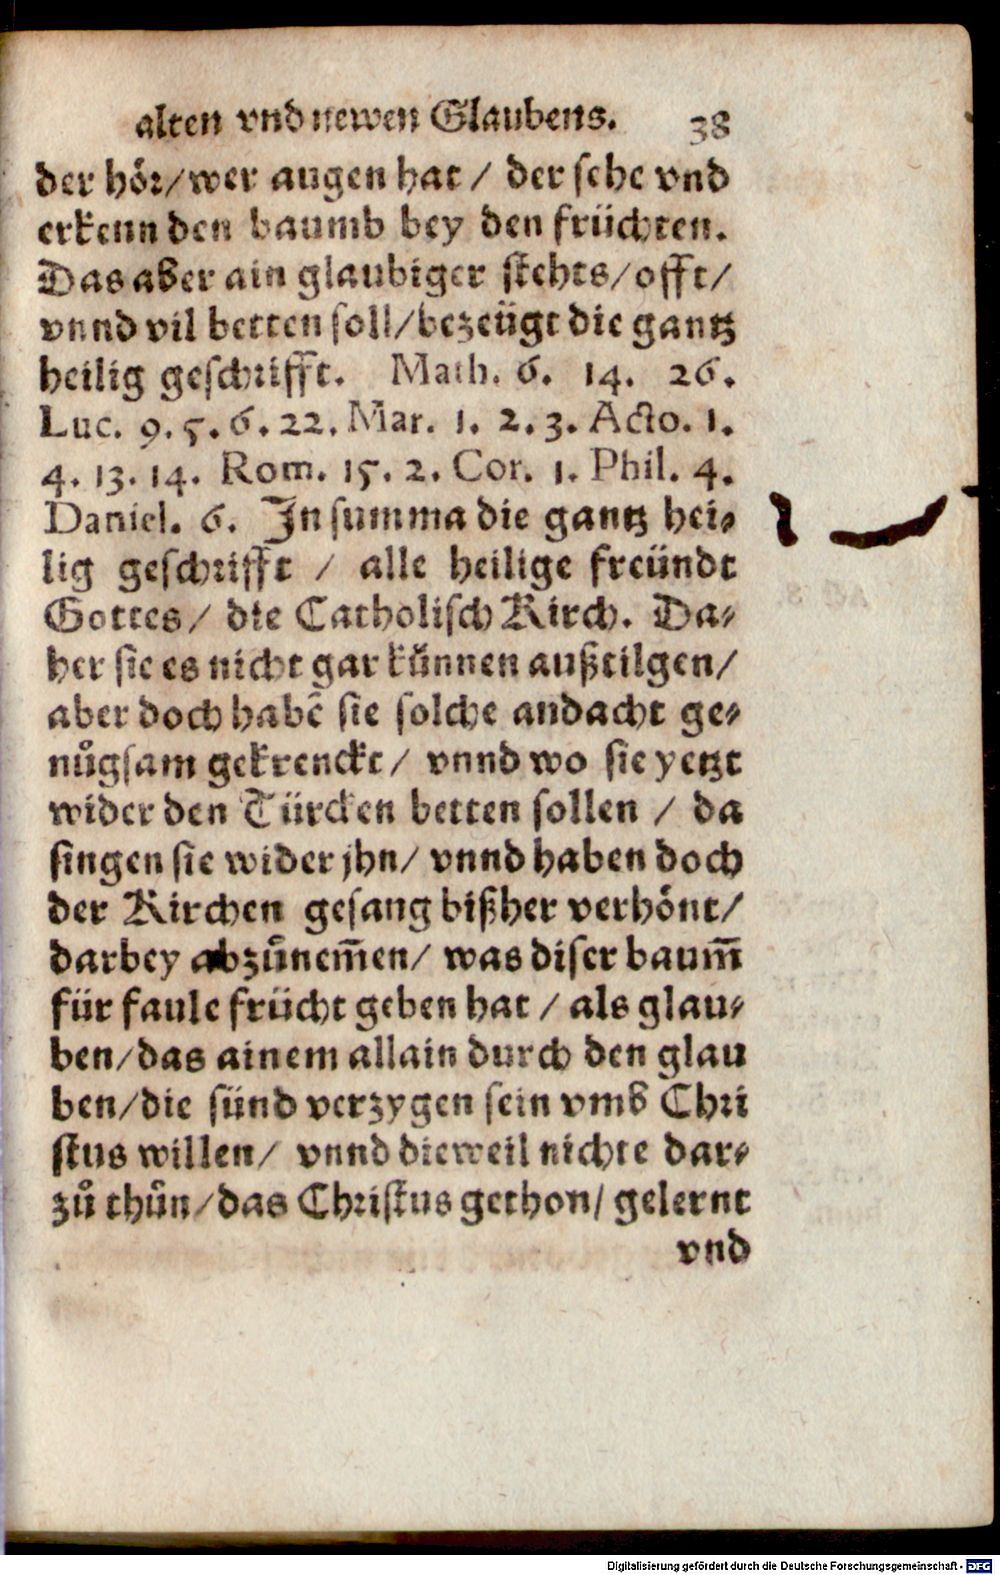 alten vnd newen Glaubens. 38
der hör/wer augen hat / der sehe vnd
erkenn den baumb bey den früchten.
Das aber ain glaubiger stehts/offt/
vnnd vil betten soll/bezeügt die gantz
heilig geschrifft. Math. 6. 14. 26.
Luc. 9. 5. 6. 22. Mar. 1. 2. 3. Acto. 1.
4. 13. 14. Rom. 15. 2. Cor. 1. Phil. 4.
Daniel. 6. In summa die gantz hei⸗
lig geschrifft / alle heilige freündt
Gottes/ die Catholisch Kirch. Da⸗
her sie es nicht gar künnen außtilgen/
aber doch habẽ sie solche andacht ge⸗
nůgsam gekrenckt/ vnnd wo sie yetzt
wider den Türcken betten sollen / da
singen sie wider jhn/ vnnd haben doch
der Kirchen gesang bißher verhönt/
darbey abzůnem̃en/ was diser baum̃
für faule frücht geben hat / als glau⸗
ben/das ainem allain durch den glau
ben/die sünd verzygen sein vmb Chri
stus willen/ vnnd dieweil nichte dar⸗
zů thůn/das Christus gethon/ gelernt
vnd
Digitalisierung gefördert durch die Deutsche Forschungsgemeinschaft - DFG